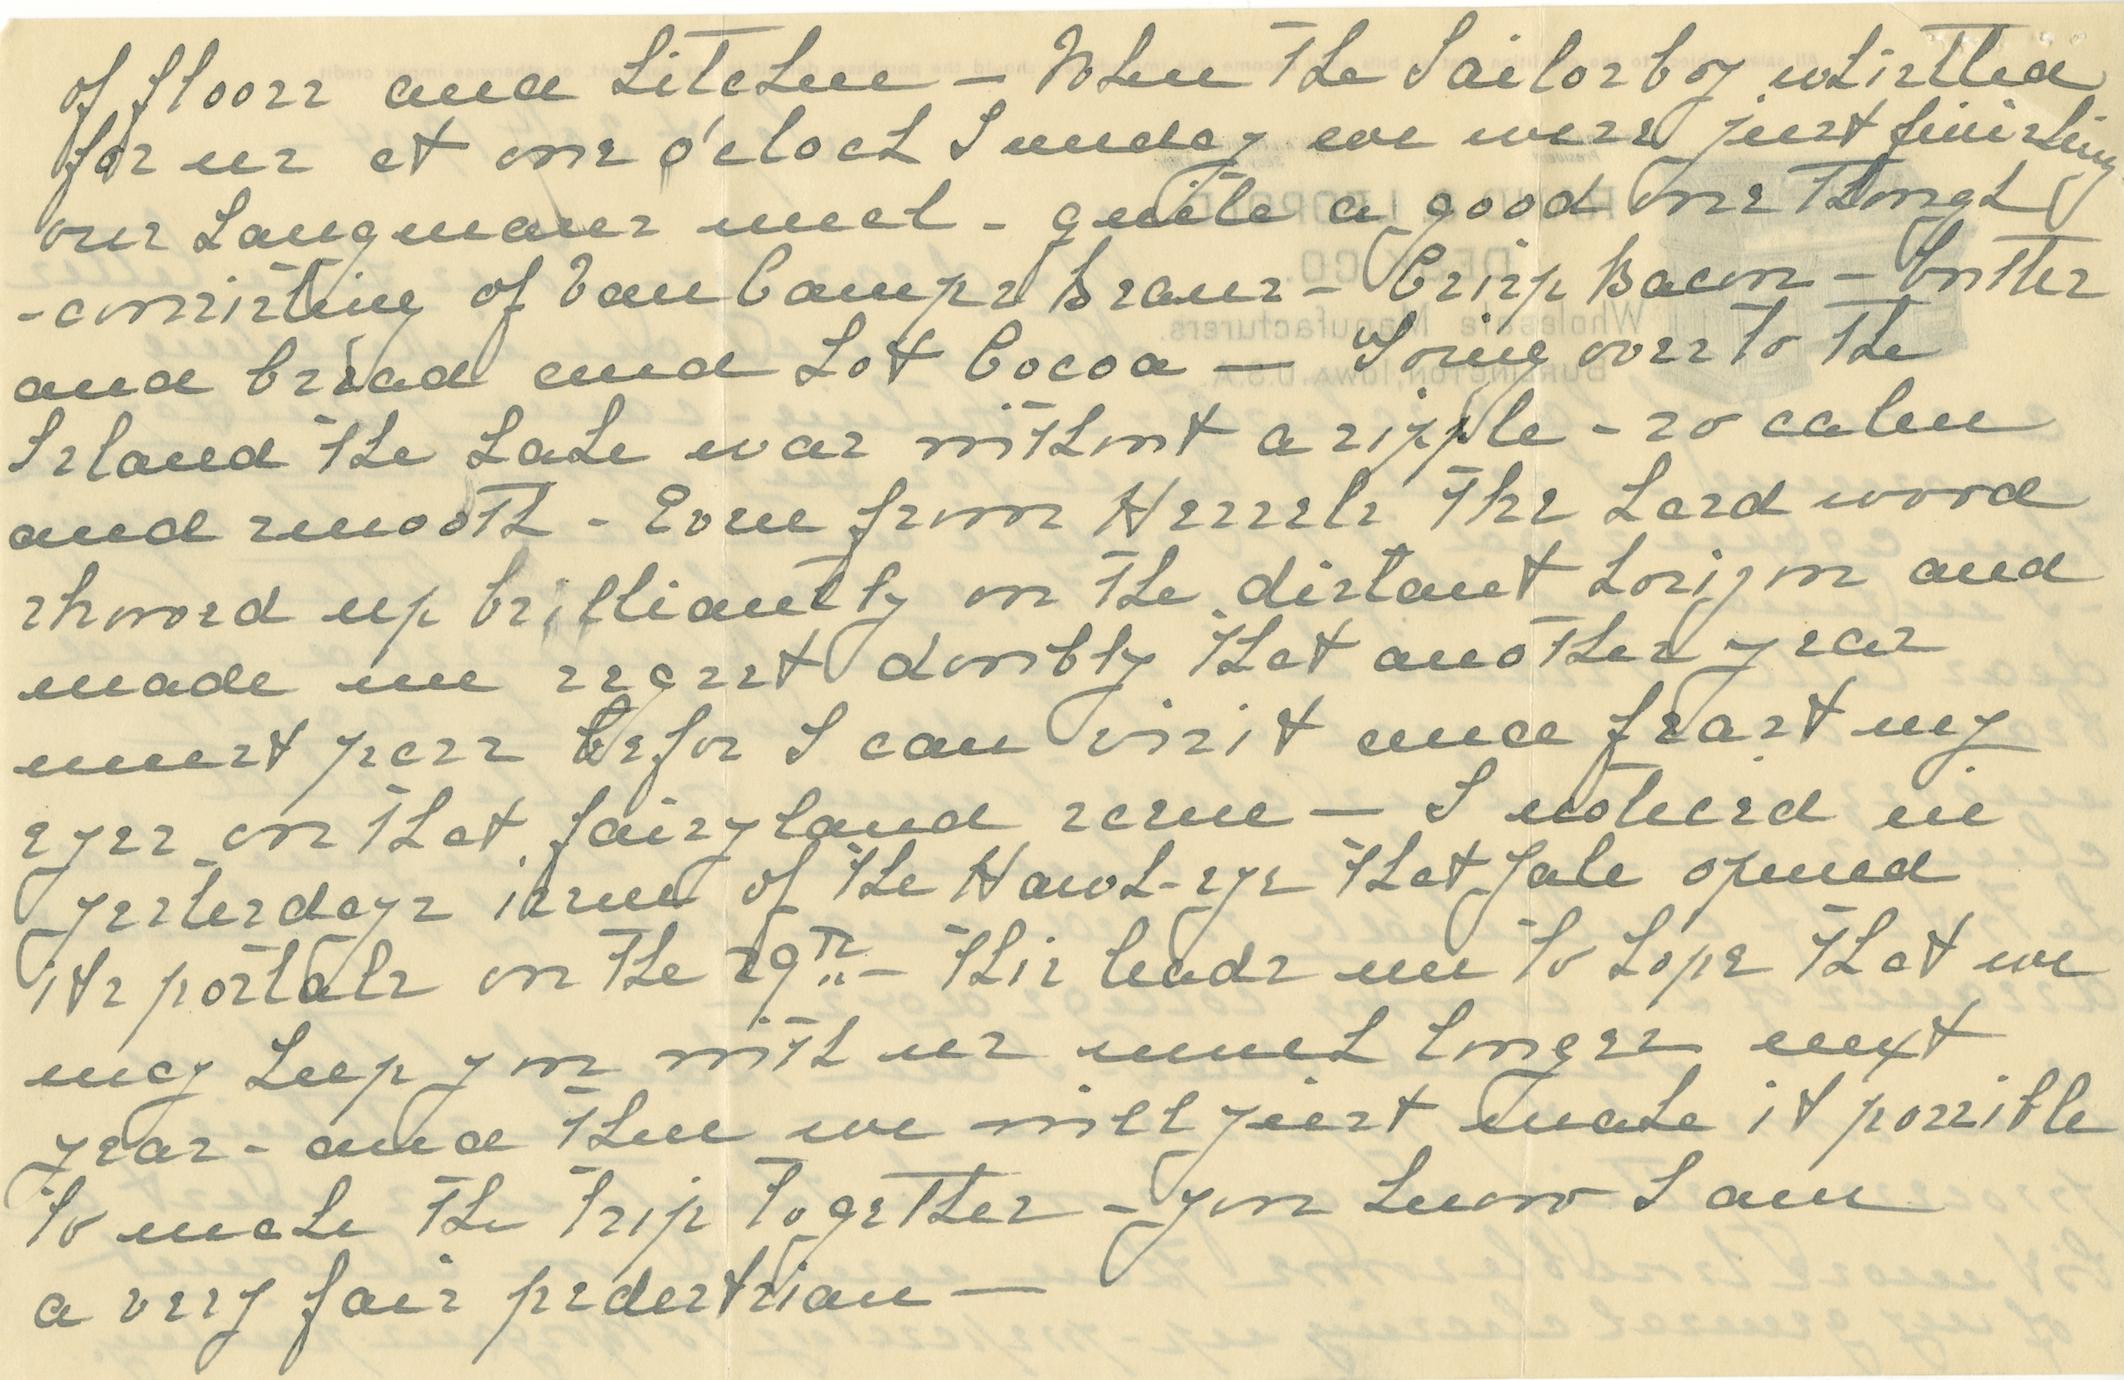 of floors and kitchen - When the Sailorboy whistled
for us at one o'clock Sunday we were just finishing
our Hangmans meal - quite a good one though
- consisting of Van Camps Beans - Crisp Bacon - butter
and bread and hot Cocoa - Going over to the
Island the Lake was without a ripple - so calm
and smooth - Even from Hessels The hard wood
showed up brilliantly on the distant horizon and
made me regret doubly that another year
must pass before I can visit and feast my
eyes on that fairyland scene - I noticed in
yesterdays issue of the Hawk-eye that Yale opened
its portals on the 29th - this leads me to hope that we
may keep you with us much longer next
year - and then we will just make it possible
to make the trip together - you know I am
a very fair pedestrian -